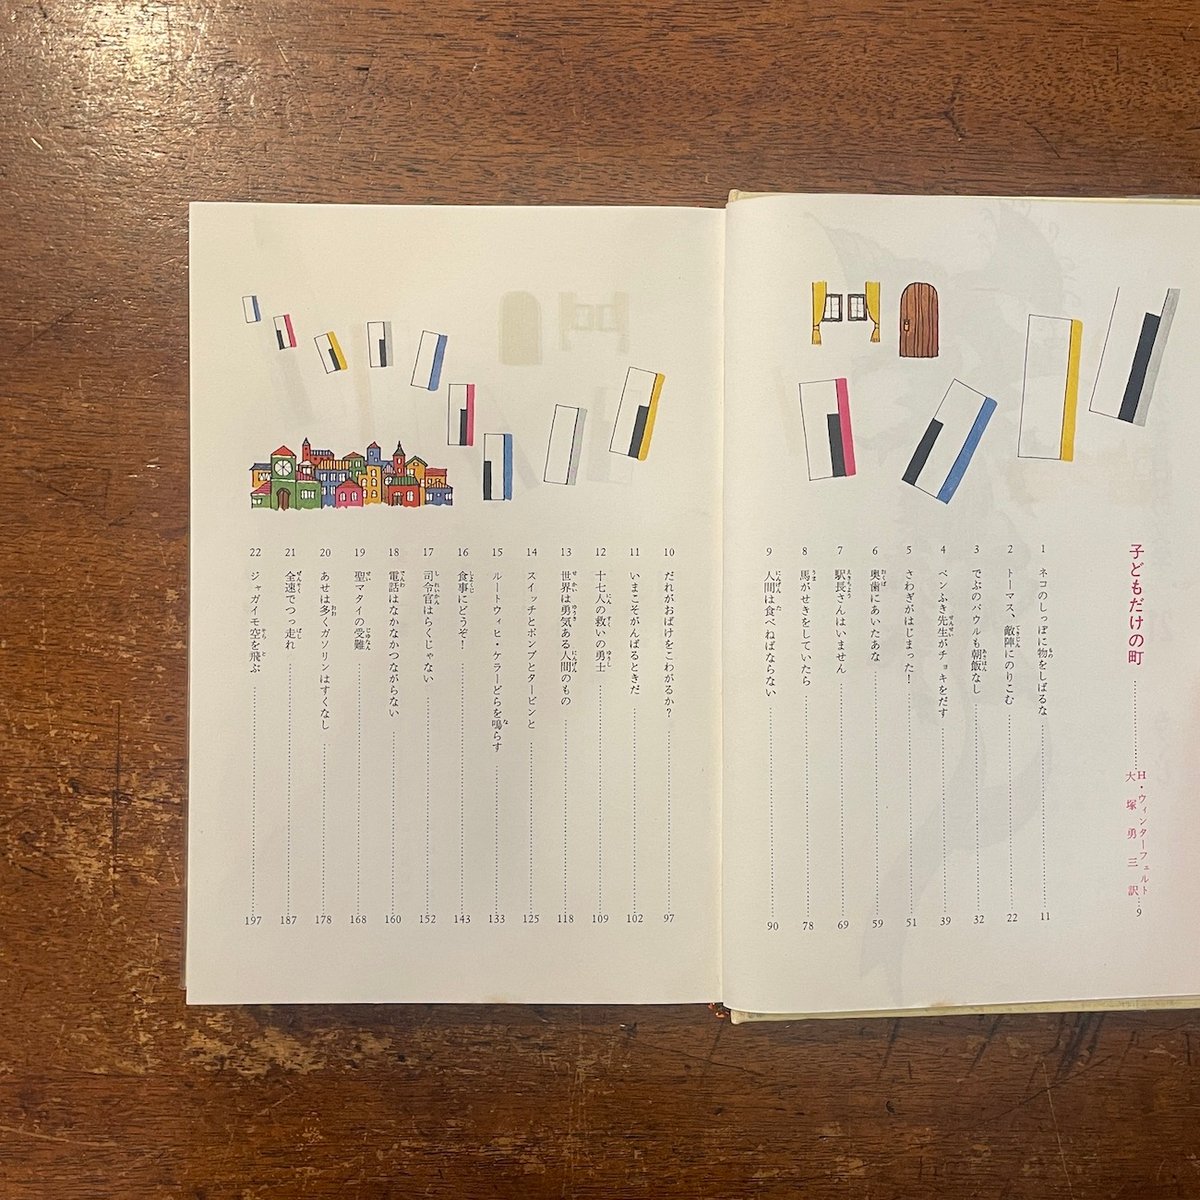 子どもだけの町 9
H・ウィンターフェルト
大塚勇三 訳
1 ネコのしっぽに物をしばるな 11
2 トーマス、敵陣にのりこむ 22
3 でぶのパウルも朝飯なし 32
4 ペンふき先生がチョキをだす 39
5 さわぎがはじまった! 51
6 奥歯にあいたあな 59
7 駅長さんはいません 69
8 馬がせきをしていたら 78
9 人間は食べねばならない 90
10 だれがおばけをこわがるか? 97
11 いまこそがんばるときだ 102
12 十七人の救いの勇士 109
13 世界は勇気ある人間のもの 118
14 スイッチとポンプとタービンと 125
15 ルートウィヒ・ケラーどらを鳴らす 133
16 食事にどうぞ! 143
17 司令官はらくじゃない 152
18 電話はなかなかつながらない 160
19 聖マタイの受難 168
20 あせは多くガソリンはすくなし 178
21 全速でつっ走れ 187
22 ジャガイモ空を飛ぶ 197